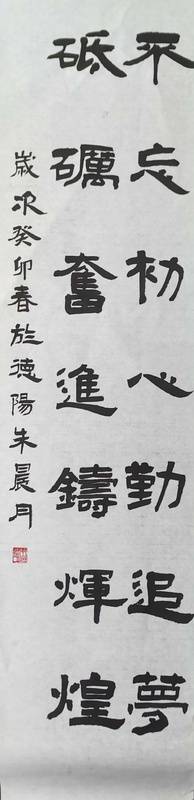 不忘初心勤追夢
砥礪奮進鑄輝煌
歲次癸卯春於德陽朱晨月